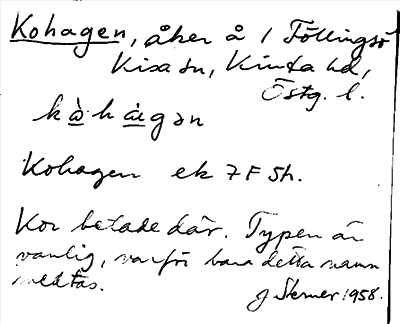 Kohagen, åker å 1 Föllingsö
Kisa sn, Kinda hd,
Östg. l.
kὰhὰgən
Kohagen ek 7F5h.
Kor betade där. Typen är
vanlig, varför bara detta namn
medtas.
J Stemer 1958.